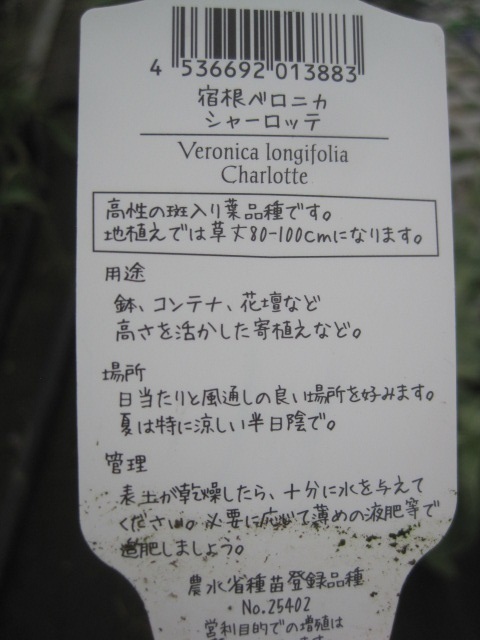 4 536692 013883
宿根ベロニカ
シャーロッテ
Veronica longifolia
Charlotte
高性の斑入り葉品種です。
地植えでは草丈80-100cmになります。
用途
鉢、コンテナ、花壇など
高さを活かした寄植えなど。
場所
日当たりと風通しの良い場所を好みます。
夏は特に涼しい半日陰で。
管理
表土が乾燥したら、十分に水を与えて
ください。必要に応じて薄めの液肥等で
追肥しましょう。
農水省種苗登録品種
No.25402
営利目的での増殖は